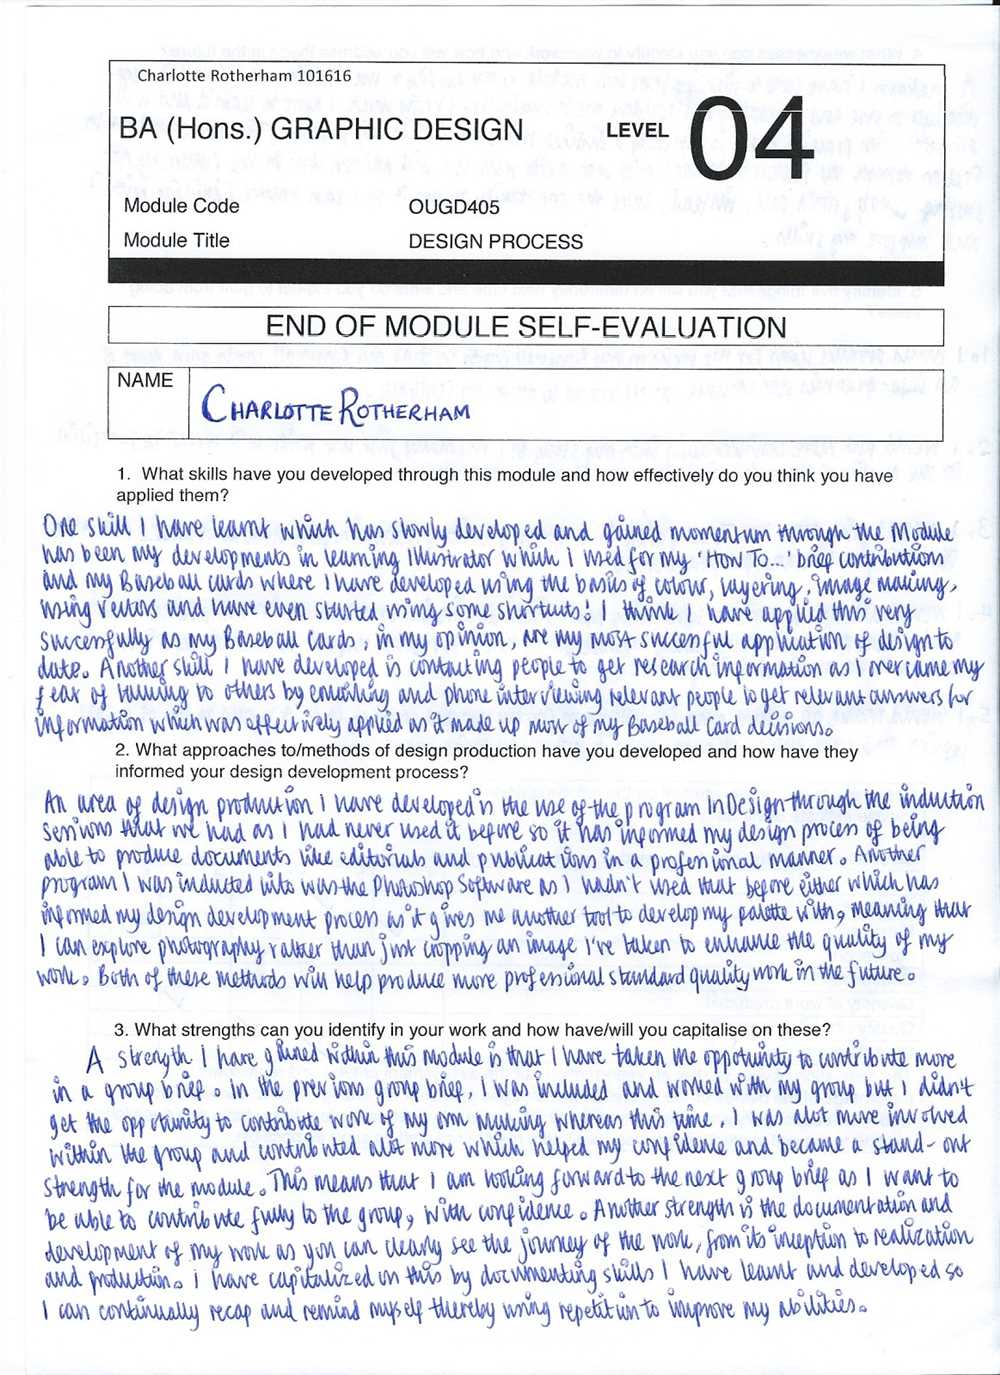 Charlotte Rotherham 101616
BA (Hons.) GRAPHIC DESIGN LEVEL 04
Module Code OUGD405
Module Title DESIGN PROCESS
END OF MODULE SELF-EVALUATION
NAME
CHARLOTTE ROTHERHAM
1. What skills have you developed through this module and how effectively do you think you have
applied them?
One skill I have learnt which has slowly developed and gained momentum through the Module
has been my developments in learning Illustrator which I used for my 'HOW TO...' brief contributions
and my Baseball cards where I have developed using the basics of colour, layering, image making,
using vectors and have even started using some shortcuts! I think I have applied this very
successfully as my Baseball Cards, in my opinion, are my most successful application of design to
date. Another skill I have developed is contacting people to get research information as I overcame my
fear of talking to others by emailing and phone interviewing relevant people to get relevant answers for
information which was effectively applied as it made up most of my Baseball Card decisions.
2. What approaches to/methods of design production have you developed and how have they
informed your design development process?
An area of design production I have developed is the use of the program InDesign through the induction
sessions that we had as I had never used it before so it has informed my design process of being
able to produce documents like editorials and publications in a professional manner. Another
program I was inducted into was the Photoshop Software as I hadn't used that before either which has
informed my design development process as it gives me another tool to develop my palette with, meaning that
I can explore photography rather than just cropping an image I've taken to enhance the quality of my
work. Both of these methods will help produce more professional standard quality work in the future.
3. What strengths can you identify in your work and how have/will you capitalise on these?
A strength I have gained within this module is that I have taken the opportunity to contribute more
in a group brief. In the previous group brief, I was included and worked with my group but I didn't
get the opportunity to contribute work of my own making whereas this time, I was alot more involved
within the group and contributed alot more which helped my confidence and became a stand-out
strength for the module. This means that I am looking forward to the next group brief as I want to
be able to contribute fully to the group, with confidence. Another strength is the documentation and
development of my work as you can clearly see the journey of the work, from its inception to realization
and production. I have capitalized on this by documenting skills I have learnt and developed so
I can continually recap and remind myself thereby using repetition to improve my abilities.